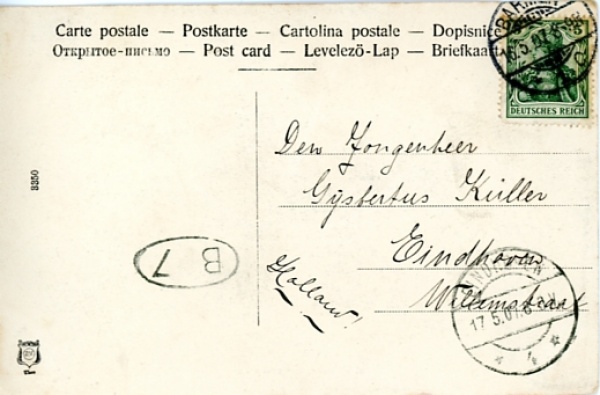 Carte postale — Postkarte — Cartolina postale — Dopisnice
Открытое-письмо — Post card — Levelezö-Lap — Briefkaart
DEUTSCHES REICH
Den Jongenheer
Gijsbertus Küller
Eindhoven
Willemstraat
Holland!
B 7
3350
BARMEN
16.5.07.
EINDHOVEN
17.5.07.
4